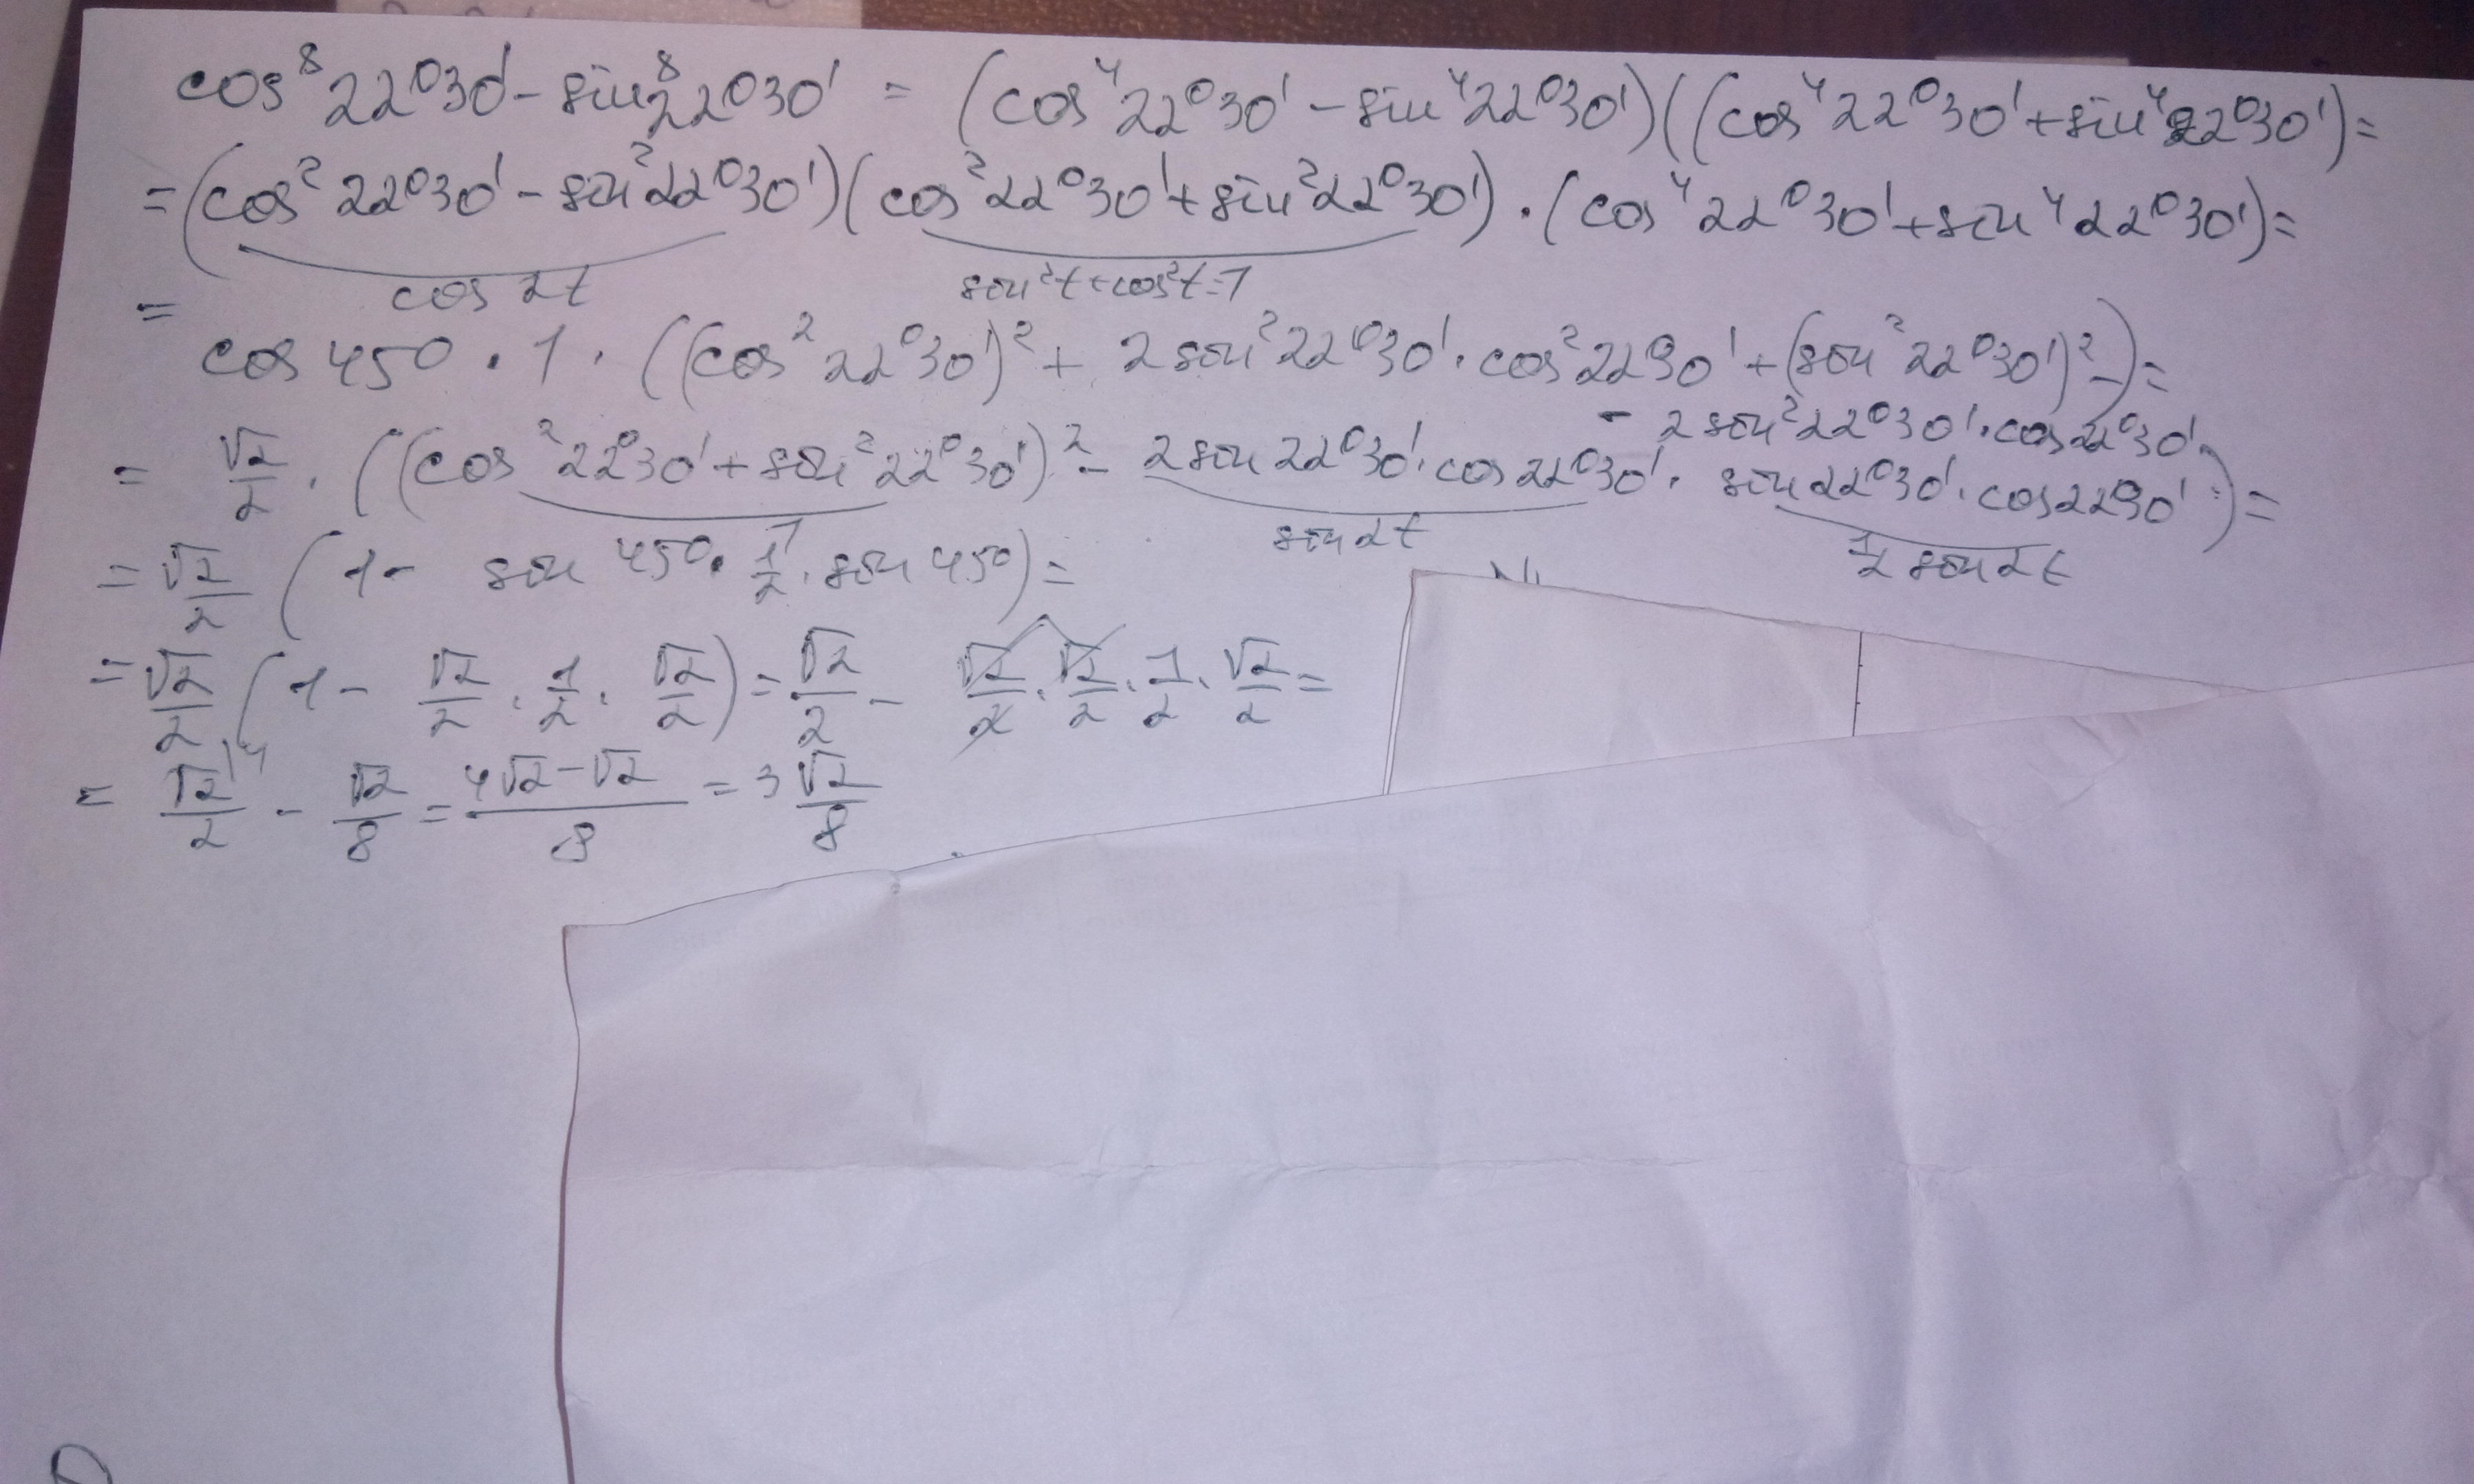 cos⁸22°30' - sin⁸22°30' = (cos⁴22°30' - sin⁴22°30')((cos⁴22°30' + sin⁴22°30') =
= (cos²22°30' - sin²22°30')(cos²22°30' + sin²22°30') · (cos⁴22°30' + sin⁴22°30') =
cos 2t sin²t + cos²t = 1
=
cos 45° · 1 · ((cos²22°30')² + 2 sin²22°30' · cos²22°30' + (sin²22°30')² -) =
- 2 sin²22°30' · cos²22°30'
= √2/2 · ((cos²22°30' + sin²22°30')² - 2 sin 22°30' · cos 22°30' · sin 22°30' · cos 22°30') =
1 sin 2t 1/2 sin 2t
= √2/2 (1 - sin 45° · 1/2 · sin 45°) =
= √2/2 (1 - √2/2 · 1/2 · √2/2) = √2/2 - √2/2 · √2/2 · 1/2 · √2/2 =
= √2/2 ⁾⁴ - √2/8 = (4√2 - √2)/8 = 3 √2/8